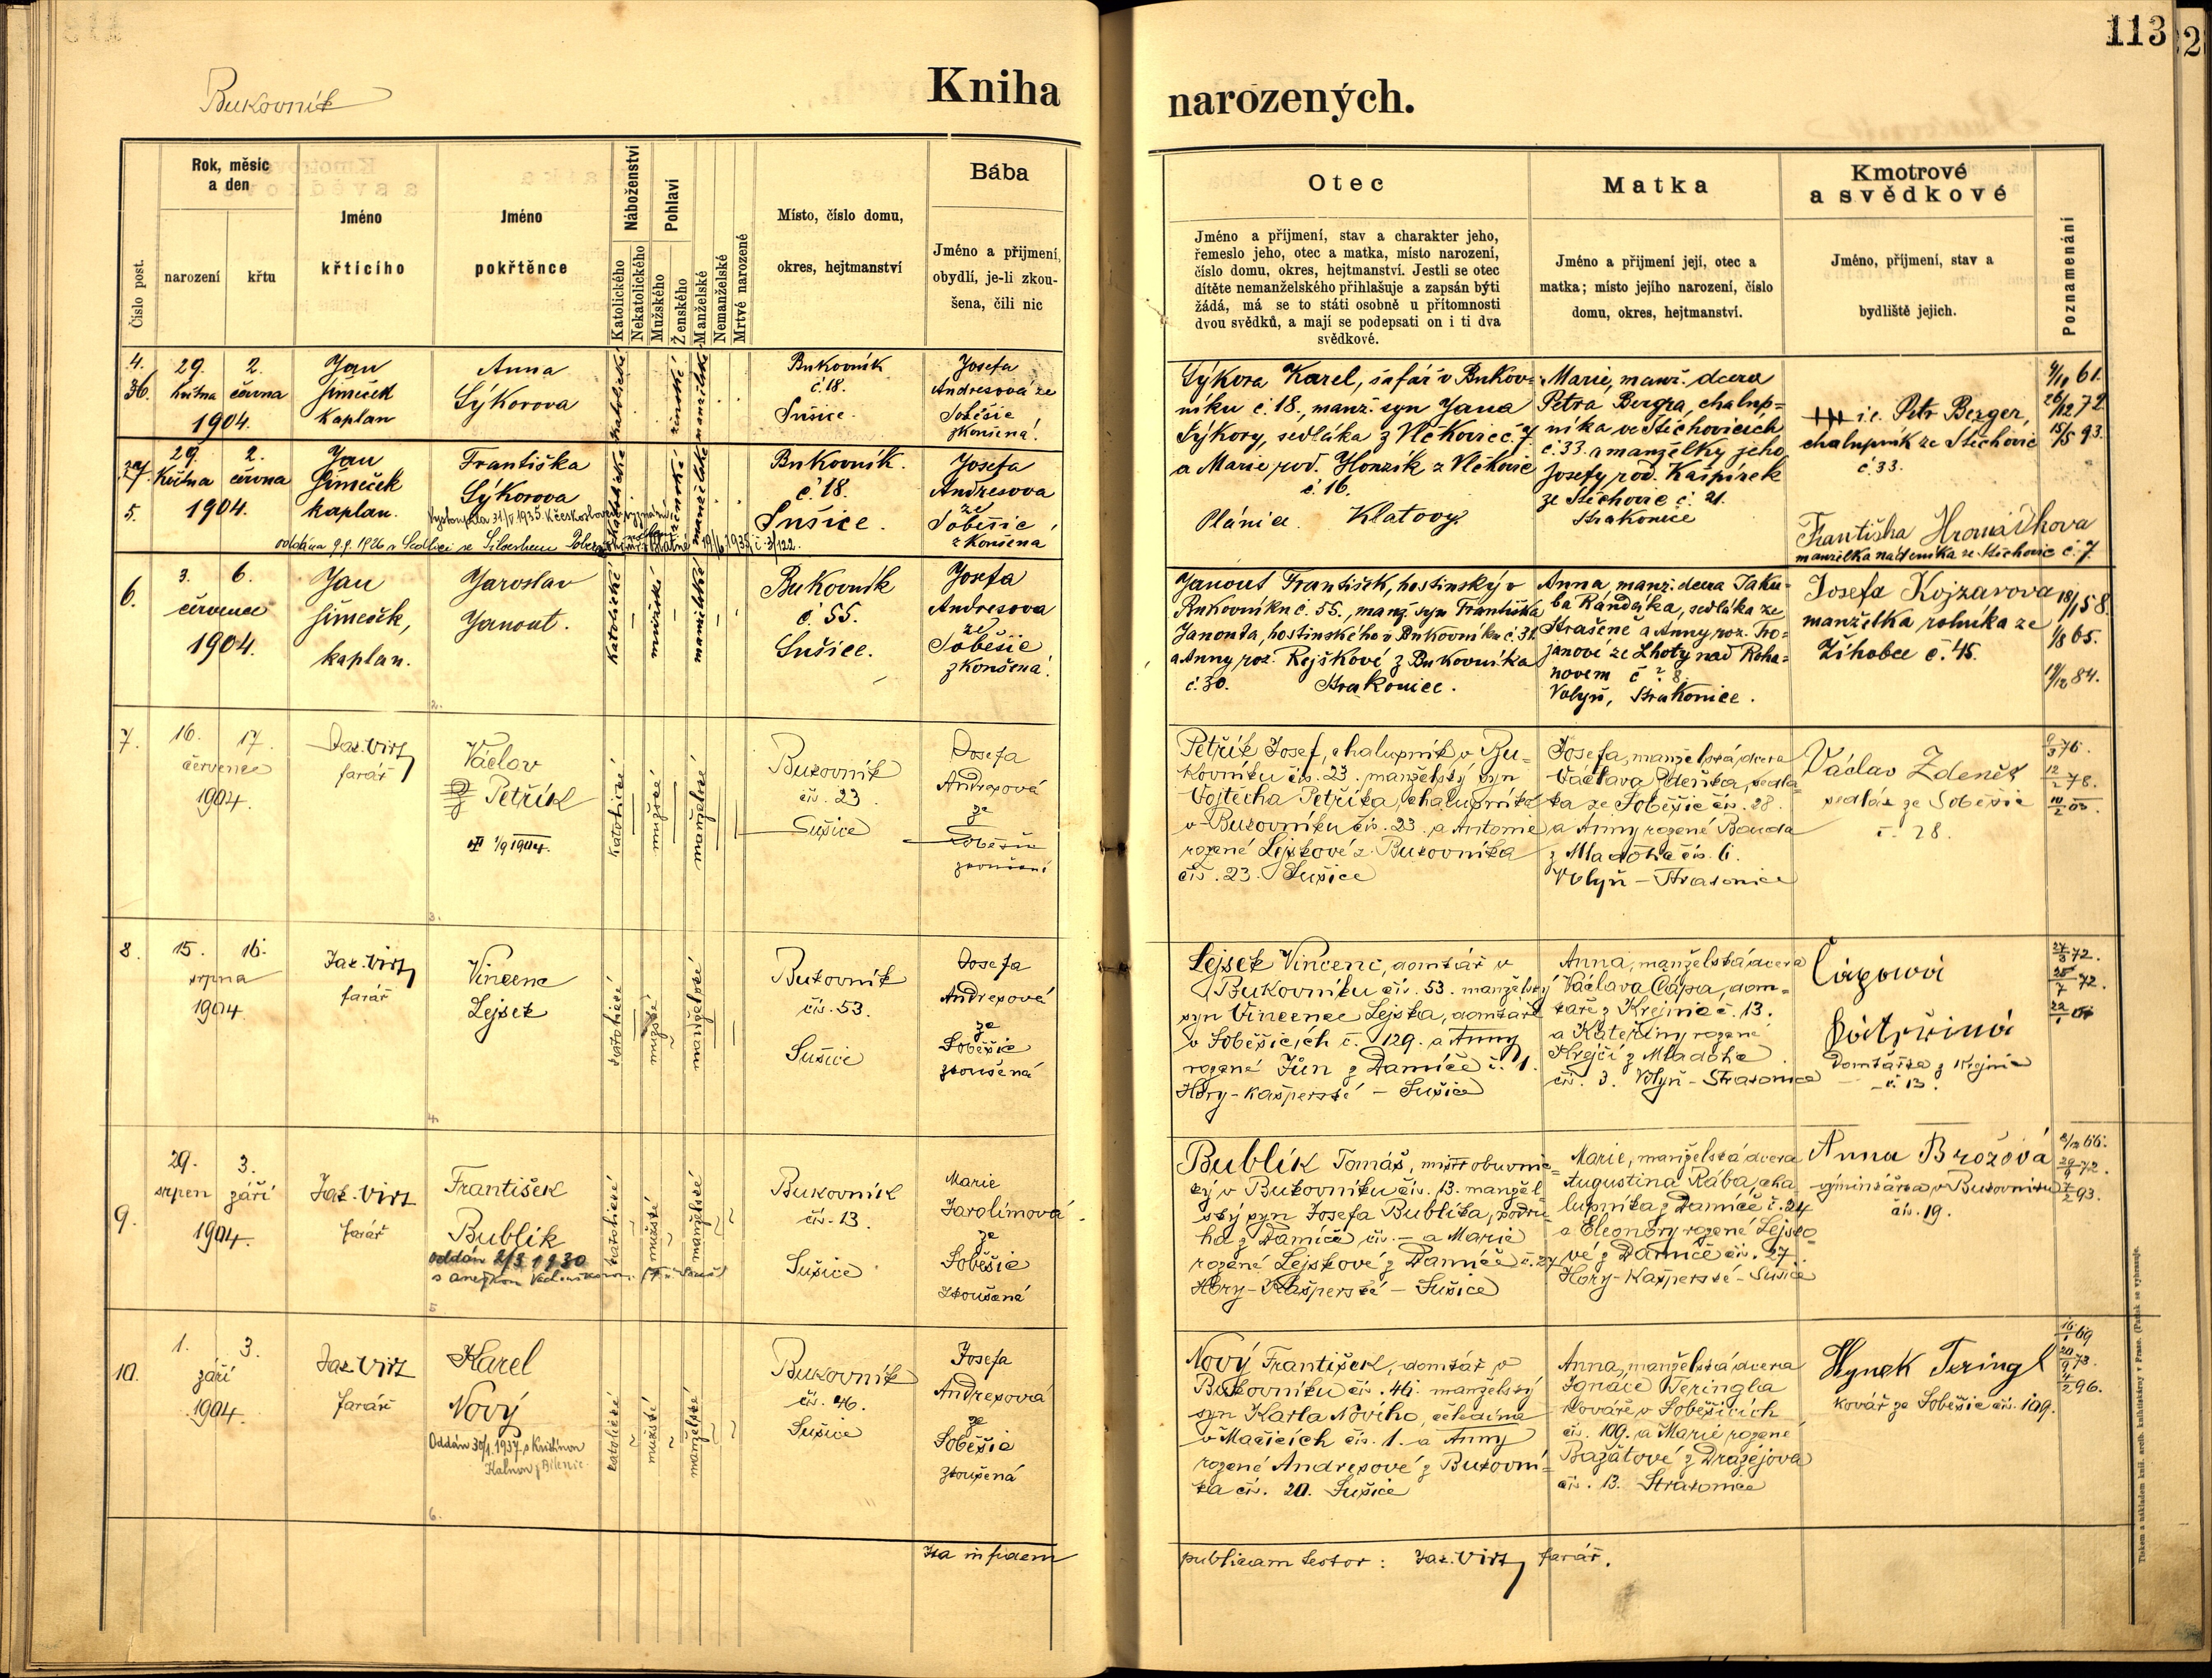 113
Bukovník
Kniha narozených.
Číslo post.
Rok, měsíc
a den
narození
křtu
Jméno
křticího
Jméno
pokřtěnce
Náboženství
Katolického
Nekatolického
Pohlaví
Mužského
Ženského
Manželské
Nemanželské
Mrtvé narozené
Místo, číslo domu,
okres, hejtmanství
Bába
Jméno a přijmení,
obydlí, je-li zkou-
šena, čili nic
Otec
Jméno a příjmení, stav a charakter jeho,
řemeslo jeho, otec a matka, místo narození,
číslo domu, okres, hejtmanství. Jestli se otec
dítěte nemanželského přihlašuje a zapsán býti
žádá, má se to státi osobně u přítomnosti
dvou svědků, a mají se podepsati on i ti dva
svědkové.
Matka
Jméno a přijmení její, otec a
matka; místo jejího narození, číslo
domu, okres, hejtmanství.
Kmotrové
a svědkové
Jméno, příjmení, stav a
bydliště jejich.
Poznamenání
4.
36.
29. 2.
května června
1904.
Jan
Šimeček
kaplan
Anna
Sýkorova
katolické
ženské
manželské
Bukovník
č. 18.
Sušice.
Josefa
Andresová ze
Soběšic
zkoušená.
Sýkora Karel, šafář v Bukov-
níku č. 18., manž. syn Jana
Sýkory, sedláka z Vlčkovic č. 7.
a Marie roz. Honzík z Vlčkovic
č. 16.
Plánice. Klatovy.
Marie, manž. dcera
Petra Bergra, chalup-
níka ve Stichovicích
č. 33. a manželky jeho
Josefy roz. Kašpírek
ze Stichovic č. 21.
Strakonice
i.c. Petr Berger,
chalupník ze Stichovic
č. 33.
9/11 61.
26/12 72.
15/5 93.
5.
29. 2.
května června
1904.
Jan
Šimeček
kaplan.
Františka
Sýkorova
katolické
ženské
manželské
Bukovník.
č. 18.
Sušice.
Josefa
Andresova
ze
Soběšic
zkoušená
Františka Hromádkova
manželka nádeníka ze Stichovic č. 7.
6.
3. 6.
července
1904.
Jan
Šimeček,
kaplan.
Jaroslav
Janout.
katolické
mužské
manželské
Bukovník
č. 55.
Sušice.
Josefa
Andresova
ze
Soběšic
zkoušená.
Janout František, hostinský v
Bukovníku č. 55., manž. syn Františka
Janouta, hostinského v Bukovníku č. 31.
a Anny roz. Rejškové z Bukovníka
č. 30. Strakonice.
Anna, manž. dcera Jaku-
ba Randáka, sedláka ze
Strašeně a Anny roz. Tro-
janové ze Lhoty nad Roha-
novem č. 8.
Volyň, Strakonice.
Josefa Kojzarova
manželka rolníka ze
Žihobce č. 45.
18/1 58.
1/8 65.
19/12 84.
7.
16. 17.
července
1904.
Jak. Virt
farář
Václav
Petřík
1/9 1904.
katolické
mužské
manželské
Bukovník
čís. 23.
Sušice
Josefa
Andresová
ze
Soběšic
zkoušená
Petřík Josef, chalupník v Bu-
kovníku čís. 23. manželský syn
Vojtěcha Petříka, chalupníka
v Bukovníku čís. 23. a Antonie
rozené Lejskové z Bukovníka
čís. 23. Sušice
Josefa, manželská dcera
Václava Zdeňka, sedlá-
ka ze Soběšic čís. 28.
a Anny rozené Bouda
z Mladotic čís. 6.
Volyň – Strakonice
Václav Zdeněk
sedlák ze Soběšic
č. 28.
8.
15. 16.
srpna
1904.
Jak. Virt
farář
Vincenc
Lejsek
katolické
mužské
manželské
Bukovník
čís. 53.
Sušice
Josefa
Andresová
ze
Soběšic
zkoušená
Lejsek Vincenc, domkář v
Bukovníku čís. 53. manželský
syn Vincence Lejska, domkáře
v Soběšicích č. 129. a Anny
rozené Jůn z Damíče č. 1.
Hory-Kašperské – Sušice
Anna, manželská dcera
Václava Čápa, dom-
káře z Krejnic č. 13.
a Kateřiny rozené
Krejčí z Mladotic
čís. 3. Volyň – Strakonice
Čápová
Kateřina
domkářka z Krejnic
č. 13.
9.
29. 3.
srpen září
1904.
Jak. Virt
farář
František
Bublík
oddán 2/8 1930
katolické
mužské
manželské
Bukovník
čís. 13.
Sušice
Marie
Jarolímová
ze
Soběšic
zkoušená
Bublík Tomáš, mistr obuvnic-
ký v Bukovníku čís. 13. manžel-
ský syn Josefa Bublíka, podru-
ha z Damíče čís. – a Marie
rozené Lejskové z Damíče č. 27
Hory-Kašperské – Sušice
Marie, manželská dcera
Augustina Rába, cha-
lupníka z Damíče č. 24
a Eleonory rozené Lejsko-
vé z Damíče čís. 27.
Hory-Kašperské – Sušice
Anna Brožová
v Bukovníku
čís. 19.
10.
1. 3.
září
1904.
Jak. Virt
farář
Karel
Nový
Oddán 30/1. 1937 s Kristinou
katolické
mužské
manželské
Bukovník
čís. 46.
Sušice
Josefa
Andresová
ze
Soběšic
zkoušená
Nový František, domkář v
Bukovníku čís. 46. manželský
syn Karla Nového, čeledína
v Mačicích čís. 1. a Anny
rozené Andresové z Bukovní-
ka čís. 20. Sušice
Anna, manželská dcera
Ignáce Teringla
kováře v Soběšicích
čís. 109. a Marie rozené
Bažatové z Dražejova
čís. 13. Strakonice
Hynek Teringl
kovář ze Soběšic čís. 109.
Ita in fidem
publicam testor: Jak. Virt farář.